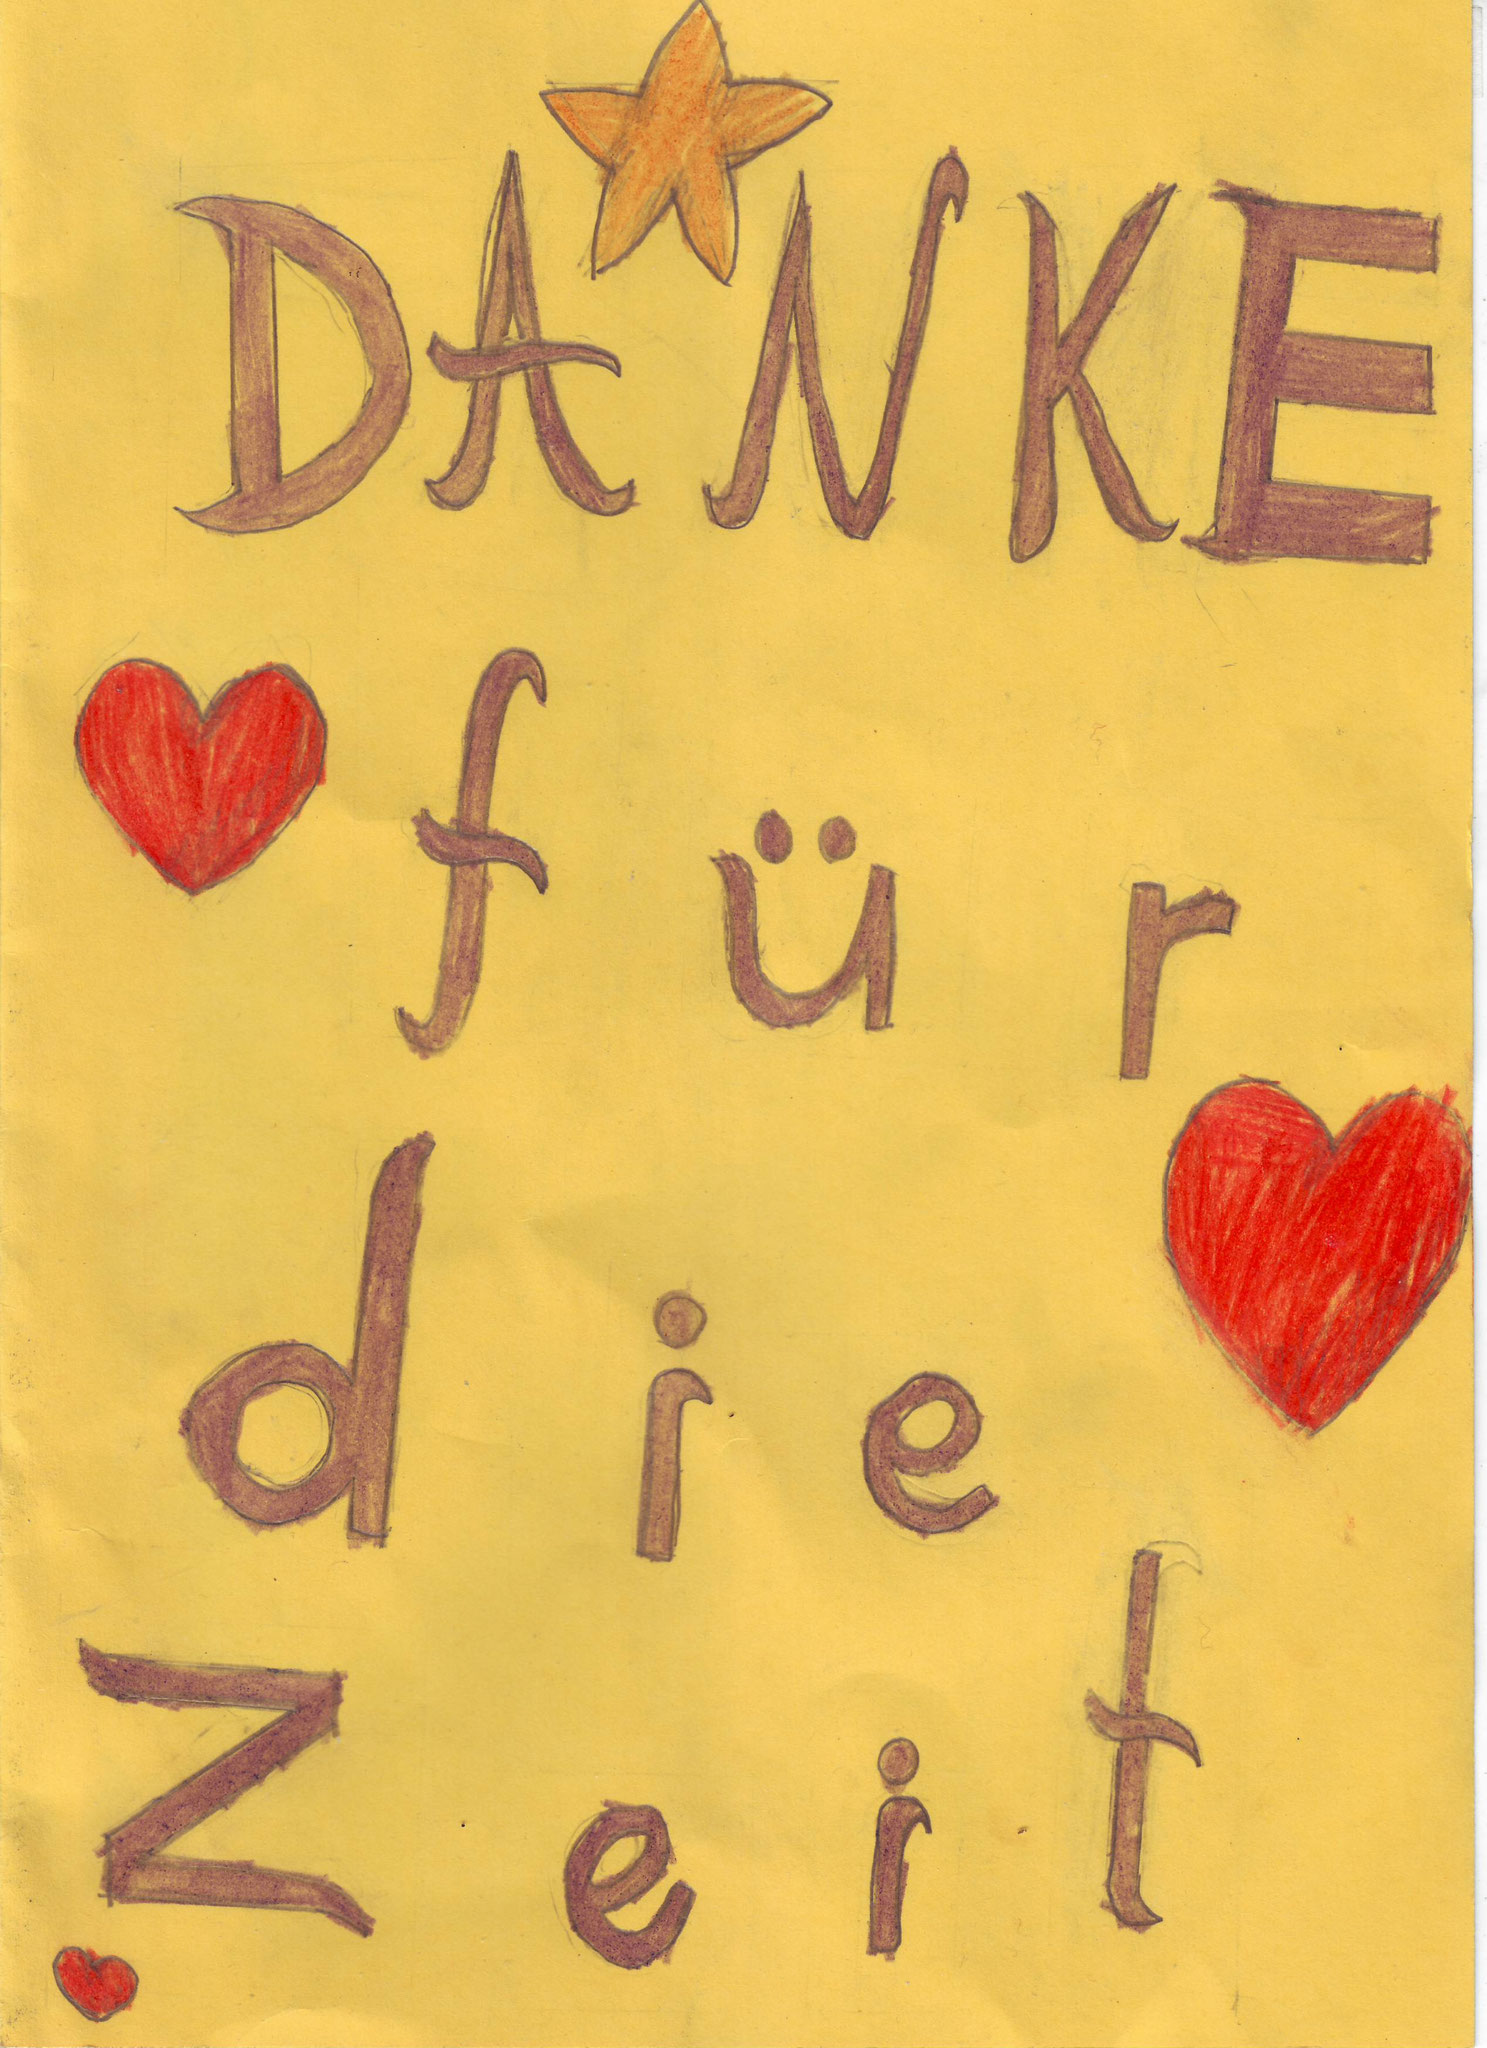 DANKE
für
die
Zeit